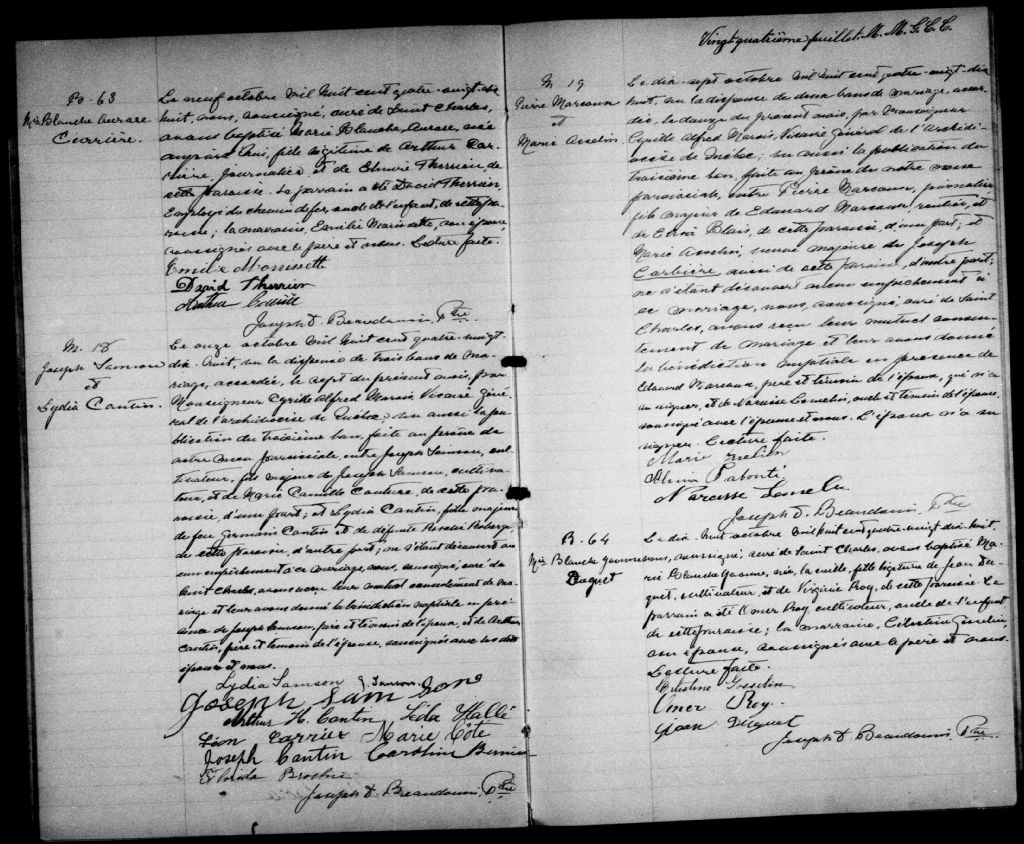 B. 63
Mie Blanche Aurore
Carrière.
Le neuf octobre mil huit cent quatre-vingt-dix
huit, nous, soussigné, curé de Saint Charles,
avons baptisé Marie Blanche, Aurore, née
aujourd'hui, fille légitime de Arthur Car-
rière, journalier et de Therrien, de
cette paroisse. Le parrain a été David Therrien,
Employé du chemin de fer, oncle de l'enfant, de cette pa-
roisse; la marraine, Emilie Morissette, son épouse,
soussignés avec le père et nous. Lecture faite.
Emilie Morrissett
David Therrien
Arthur
Joseph D. Beaudouin, Ptre
M. 18
Joseph Samson
et
Lydia Cantin.
Le onze octobre mil huit cent quatre-vingt
dix-huit, vu la dispense de trois bans de ma-
riage, accordée, le sept du présent mois, par
Monseigneur Cyrille Alfred Marois, Vicaire Géné-
ral de l'archidiocèse de Québec; vu aussi la pu-
blication du troisième ban, faite au prône de
notre messe paroissiale, entre Joseph Samson, cul-
tivateur, fils majeur de Joseph Samson, cultiva-
teur, et de Marie Camille Couture, de cette pa-
roisse, d'une part; et Lydia Cantin, fille majeure
de feu Germain Cantin et de défunte Roberge
de cette paroisse, d'autre part; ne s'étant découvert au-
cun empêchement à ce mariage, nous, soussigné, curé de
Saint Charles, avons reçu leur mutuel consentement de ma-
riage et leur avons donné la bénédiction nuptiale en pré-
sence de Joseph Samson, père et témoin de l'époux, et de Arthur
Cantin, frère et témoin de l'épouse, soussignés avec les dits
époux et nous.
Lydia Samson J. Samson
Joseph Samson
Arthur H. Cantin Léda Hallé
Léon Carrier Marie Côté
Joseph Cantin Caroline Bernier
Florida
Joseph D. Beaudouin, Ptre
Vingt-quatrième feuillet. M. M. G. C. C.
M. 19
Pierre Marceau
et
Marie Asselin
Le dix-sept octobre mil huit cent quatre-vingt-dix
huit, vu la dispense de deux bans de mariage, accor-
dée, le douze du présent mois, par Monseigneur
Cyrille Alfred Marois, Vicaire Général de l'Archidi-
ocèse de Québec; vu aussi la publication du
troisième ban, faite au prône de notre messe
paroissiale, entre Pierre Marceau, journalier,
fils majeur de Edouard Marceau rentier, et
de Blais, de cette paroisse, d'une part; et
Marie Asselin, veuve majeure de Joseph
Corbière aussi de cette paroisse, d'autre part;
ne s'étant découvert aucun empêchement à
ce mariage, nous, soussigné, curé de Saint
Charles, avons reçu leur mutuel consen-
tement de mariage et leur avons donné
la bénédiction nuptiale en présence de
Edouard Marceau, père et témoin de l'époux, qui n'a
su signer, et de Narcisse Lemelin, oncle et témoin de l'épouse
soussigné avec l'épouse et nous. L'époux n'a su
signer. Lecture faite.
Marie
Narcisse
Joseph D. Beaudouin, Ptre
B. 64
Mie Blanche Yvonne
Duquet
Le dix-huit octobre mil huit cent quatre-vingt dix-huit,
nous, soussigné, curé de Saint Charles, avons baptisé Ma-
rie Blanche Yvonne, née, la veille, fille légitime de Jean Du-
quet, cultivateur, et de Virginie Roy, de cette paroisse. Le
parrain a été Omer Roy cultivateur, oncle de l'enfant
de cette paroisse; la marraine, Célestine Gosselin
son épouse, soussignés avec le père et nous.
Lecture faite.
Célestine Gosselin
Omer Roy.
Jean Duquet
Joseph D. Beaudouin, Ptre